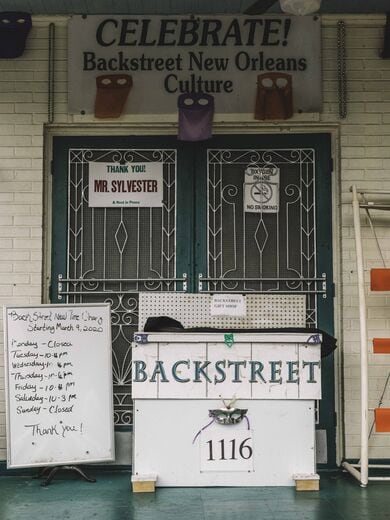 CELEBRATE!
Backstreet New Orleans
Culture
THANK YOU!
MR. SYLVESTER
& Rest in Peace
OXYGEN
IN USE
NO SMOKING
BACKSTREET
GIFT SHOP
Back Street New Time Chang
Starting March 9, 2020
Monday - Closed
Tuesday - 10-4 pm
Wednesday - 11- 4 pm
Thursday - 11-4 pm
Friday - 10-4 pm
Saturday - 10-3 pm
Sunday - Closed
Thank you!
BACKSTREET
1116